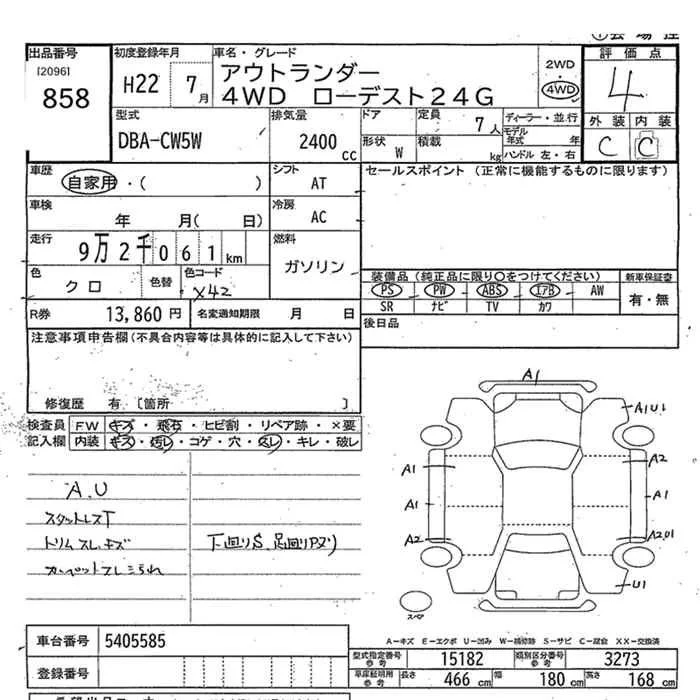 出品番号
[2096]
858
初度登録年月
H22 7月
車名・グレード
アウトランダー
4WD ローデスト24G
2WD
4WD
評価点
4
外装 内装
C C
型式
DBA-CW5W
排気量
2400
cc
ドア
定員
7人
ディーラー・並行
モデル年式 年
形状
W
積載
kg
ハンドル 左・右
車歴
自家用・( )
シフト
AT
セールスポイント (正常に機能するものに限ります)
車検
年 月( 日)
冷房
AC
走行
9万2千061km
燃料
ガソリン
色
クロ
色替
色コード
X42
装備品 (純正品に限り○をつけてください)
新車保証書
PS PW ABS エアB AW
有・無
SR ナビ TV カワ
R券
13,860円
名変通知期限 月 日
後日品
注意事項申告欄(不具合内容等は具体的に記入して下さい)
修復歴 有 [箇所 ]
検査員 FW キズ・飛石・ヒビ割・リペア跡・×要
記入欄 内装 キズ・汚レ・コゲ・穴・スレ・キレ・破レ
A.U
スタットレスT
トリムスレ.キズ
下回りS、足回りパヌリ
A1
A1U1
A1
A2
A1
A1
A2
A2U1
U1
スペア
A-キズ E-エクボ U-凹み W-補修跡 S-サビ C-腐食 XX-交換済
車台番号
5405585
登録番号
型式指定番号
参考
15182
類別区分番号
参考
3273
車庫証明用
参考
長さ
466 cm
幅
180 cm
高さ
168 cm